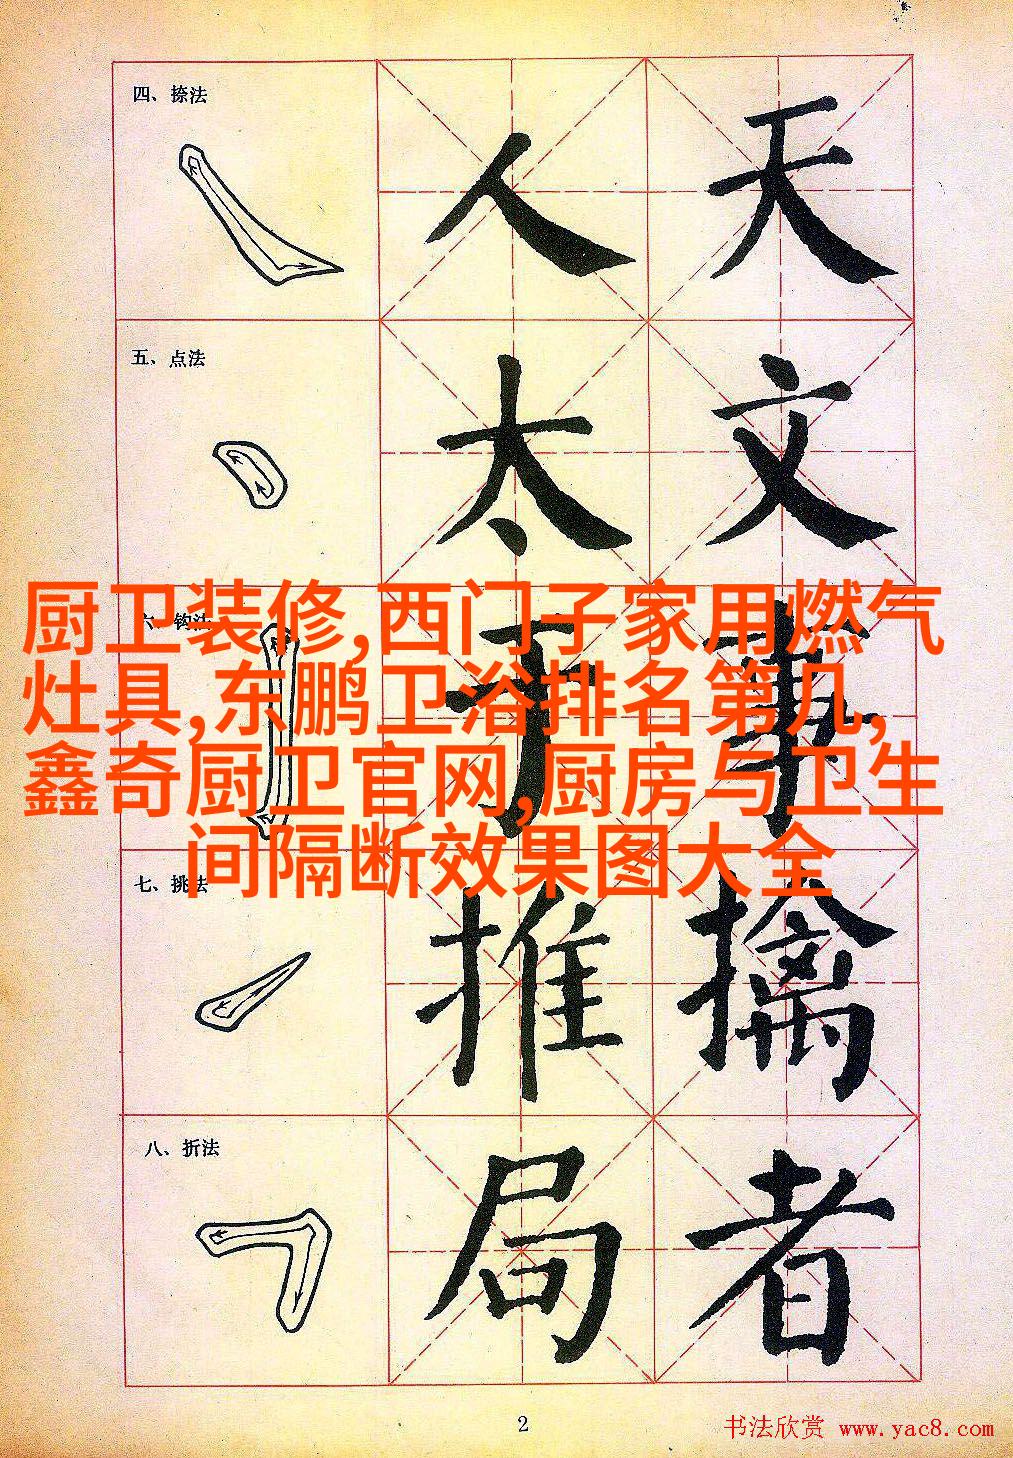 四、捺法
人 天
五、点法
太 文
六、钩法
于 事
厨卫装修,西门子家用燃气
灶具,东鹏卫浴排名第几,
鑫奇厨卫官网,厨房与卫生
间隔断效果图大全
七、挑法
推 擒
八、折法
局 者
2
书法欣赏 www.yac8.com